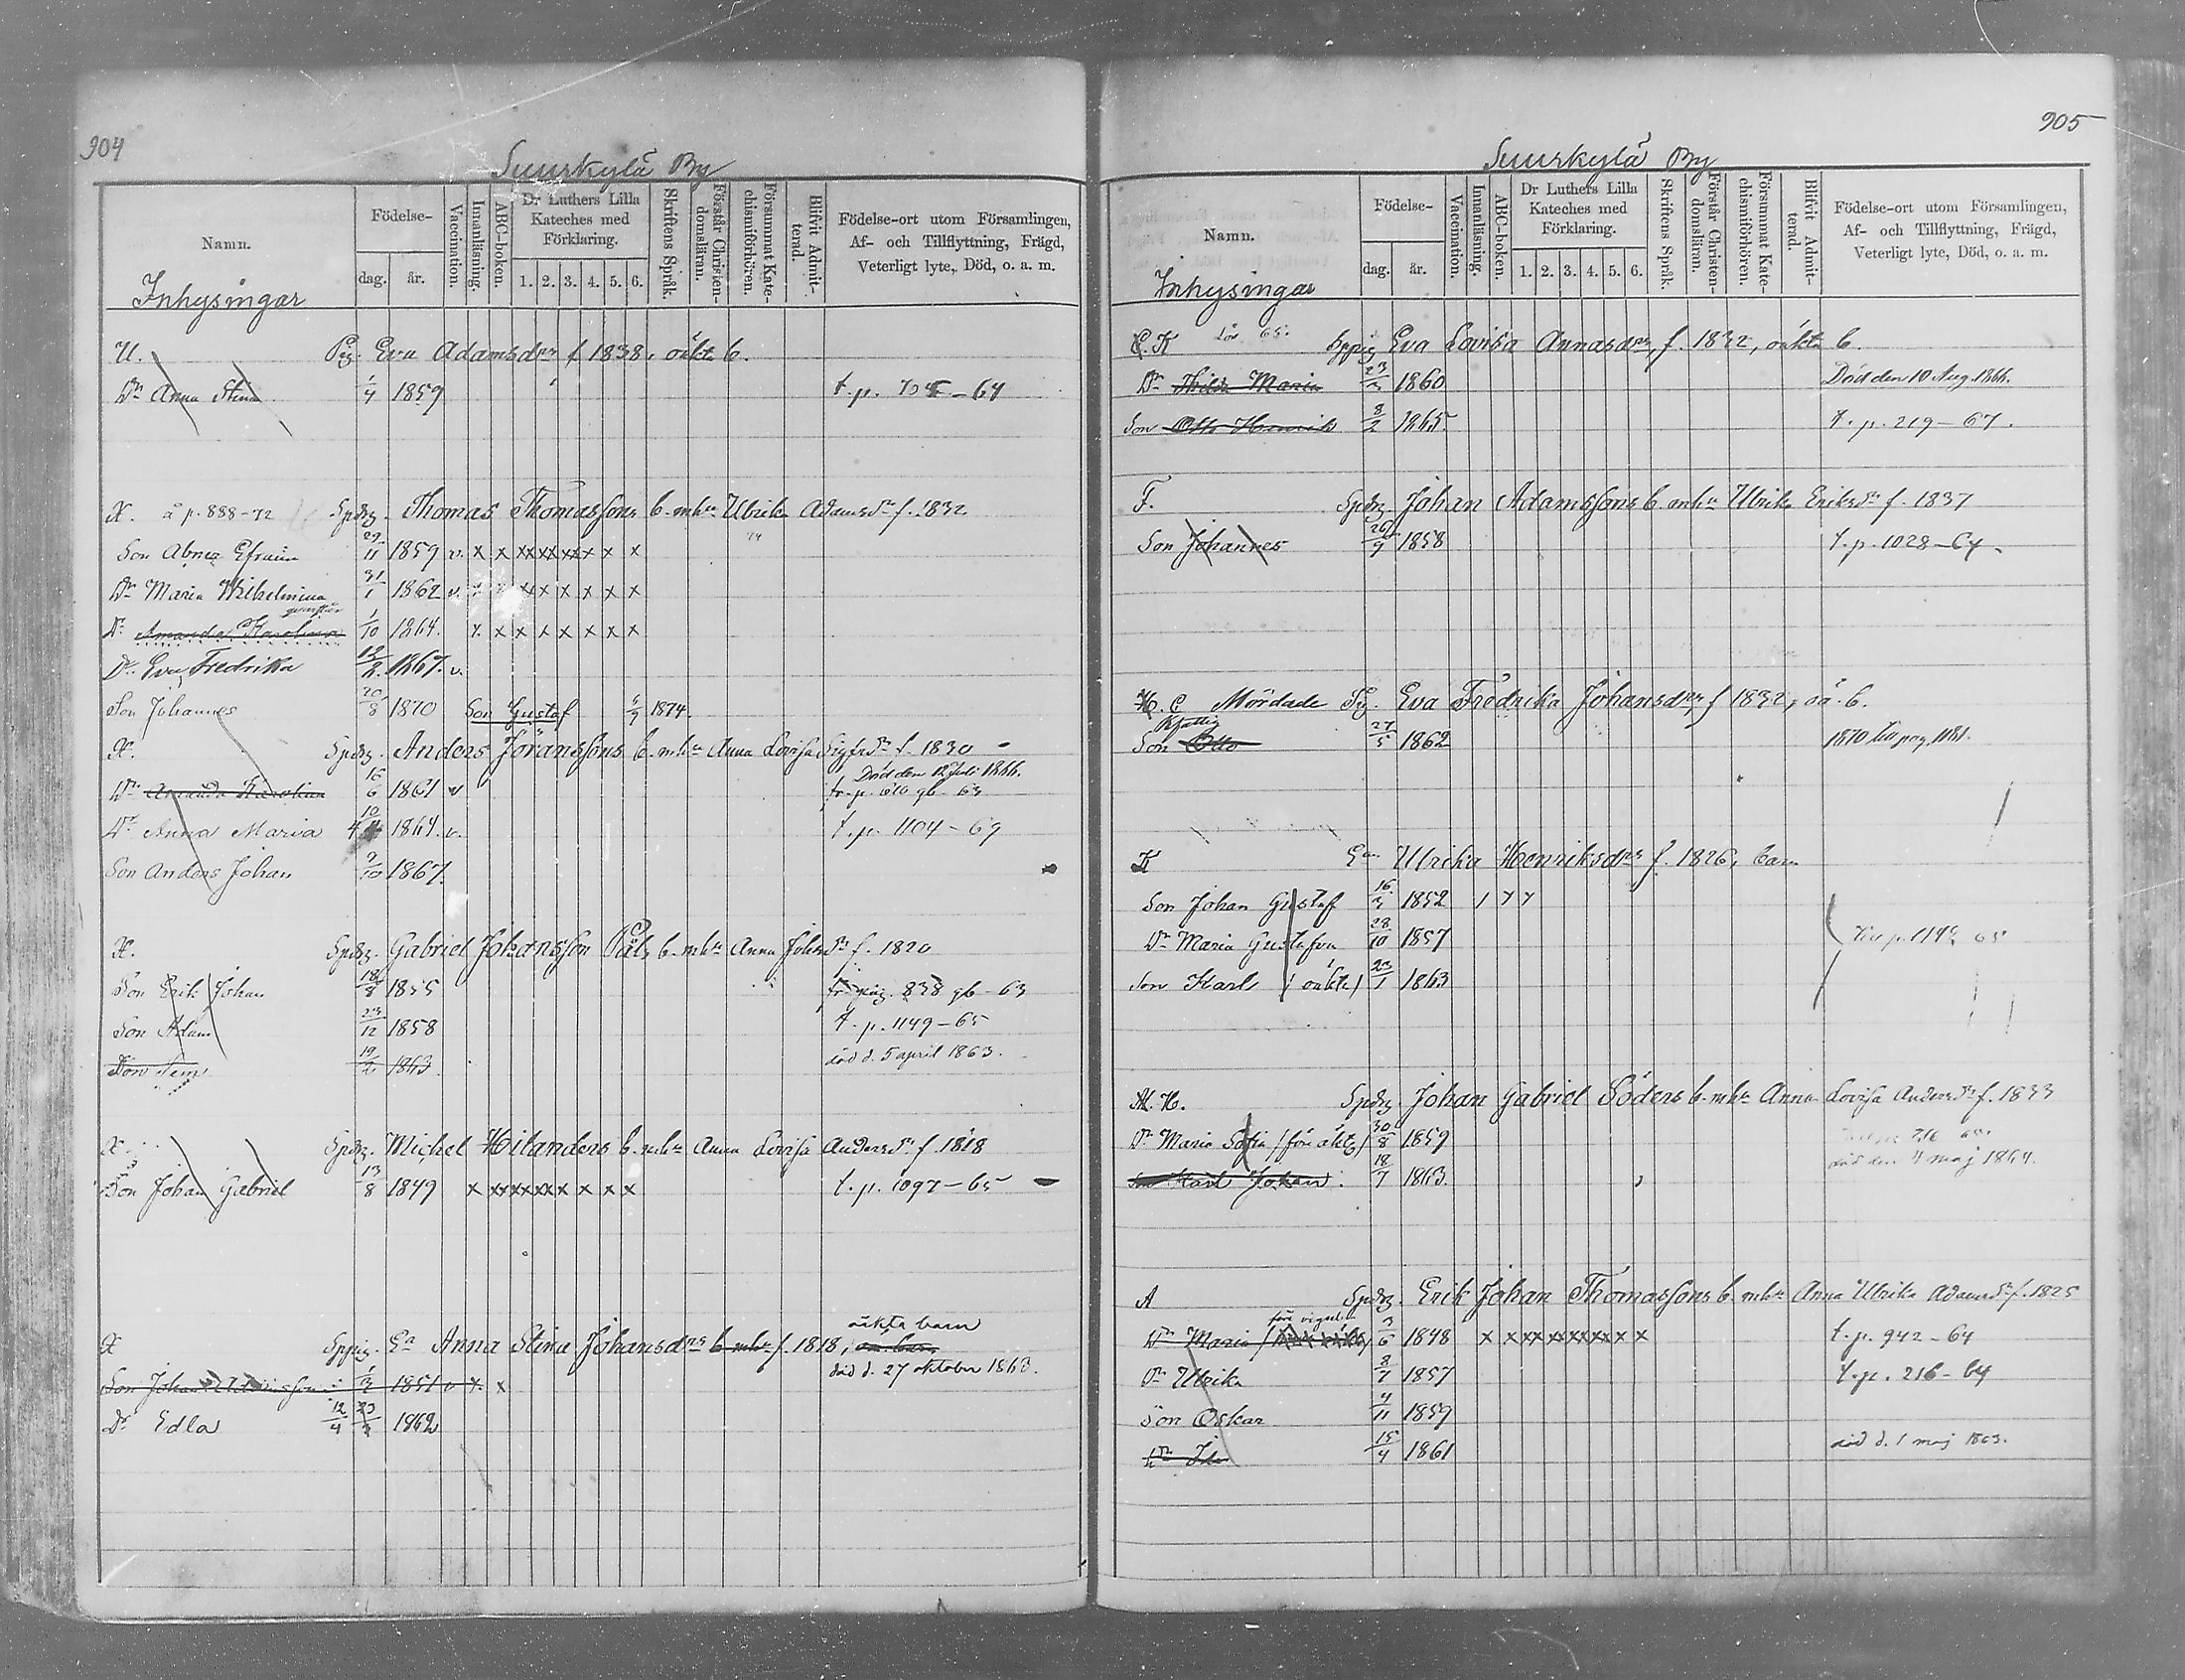 904
Suurkylä By
Namn.
Födelse-
dag.
år.
Vaccination.
Innanläsning.
ABC-boken.
Dr Luthers Lilla
Kateches med
Förklaring.
1. 2. 3. 4. 5. 6.
Skriftens Språk.
Förstår Christen-
domsläran.
Försummat Kate-
chismiförhören.
Blifvit Admit-
terad.
Födelse-ort utom Församlingen,
Af- och Tillflyttning, Frägd,
Veterligt lyte, Död, o. a. m.
Inhysingar
U. Pig. Eva Adamsdrs f. 1838, oäkta b.
Dr Anna Stina 1/4 1859 t.p. 704-64
X. å p. 888-72 Spdrg. Thomas Thomassons b. mhu Ulrika Adamsdr f. 1832
Son Abner Efraim 29/11 1859 v. x x x x x x x x x
Dr Maria Wilhelmina 31/1 1862 v. x x x x x x x
Dr Amanda Karolina 1/10 1864. x x x x x x x x
Dr Eva Fredrika 1867. v.
Son Johannes 20/8 1870 Son Gustaf 1874.
X. Spdrg. Anders Göranssons b. mhu Anna Lovisa Sigfrdr f. 1830
Död den 12 Juli 1866.
Dr Amanda Karolina 16/6 1861 v fr. p. 810 gb - 63
Dr Anna Maria 10/4 1864. v. t.p. 1104-69
Son Anders Johan 9/10 1867.
X. Spdrg. Gabriel Johansson Päls b. mhu Anna Johsdr f. 1820
Son Erik Johan 18/8 1855 fr. pag. 838 gb - 63
Son Adam 23/12 1858 t.p. 1149-65
Son Sem 19/2 1863 död d. 5 april 1863.
X. Spdrg. Michel Hilanders b. mhu Anna Lovisa Andersdr f. 1818
Son Johan Gabriel 13/8 1849 x x x x x x x x x x t.p. 1097-65
oäkta barn
X Sppig. Ea Anna Stina Johansdrs b. mhu f. 1818,
Son Johan 1851 v x x död d. 27 oktober 1863.
Dr Edla 12/4 1862
905
Suurkylä By
Namn.
Födelse-
dag.
år.
Vaccination.
Innanläsning.
ABC-boken.
Dr Luthers Lilla
Kateches med
Förklaring.
1. 2. 3. 4. 5. 6.
Skriftens Språk.
Förstår Christen-
domsläran.
Försummat Kate-
chismiförhören.
Blifvit Admit-
terad.
Födelse-ort utom Församlingen,
Af- och Tillflyttning, Frägd,
Veterligt lyte, Död, o. a. m.
Inhysingar
K 65. Sppig Eva Lovisa Annasdrs, f. 1832, oäkta b.
Dr Hilda Maria 23/3 1860 Död den 10 Aug. 1866.
Son Otto Henrik 8/2 1865. t.p. 219-67.
F. Spdrg. Johan Adamssons b. mhu Ulrika Eriksdr f. 1837
Son Johannes 26/9 1858 t.p. 1028-64.
H. C Mördade Pig. Eva Fredrika Johansdrs f 1832, oä. b.
Son Otto 27/5 1862 1870 till pag. 1181.
K Ean Ulrika Henriksdrs f. 1826, barn
Son Johan Gustaf 16/3 1852
Dr Maria Gustafva 28/10 1857 65
Son Karl (oäkta) 23/1 1863
H. Spdrg. Johan Gabriel Söders b. mhu Anna Lovisa Andersdr f. 1833
Dr Maria Sofia (före äkt.) 30/8 1859
död den 4 maj 1864.
Son Karl Johan. 18/7 1863.
A Spdrg. Erik Johan Thomassons b. mhu Anna Ulrika Adamsdr f. 1825
före vigseln
Dr Maria 3/6 1848 x x x x x x x x x t.p. 942-64
Dr Ulrika 8/7 1857 t.p. 216-64
Son Oskar 4/11 1859
Dr Ida 15/4 1861 död d. 1 maj 1863.